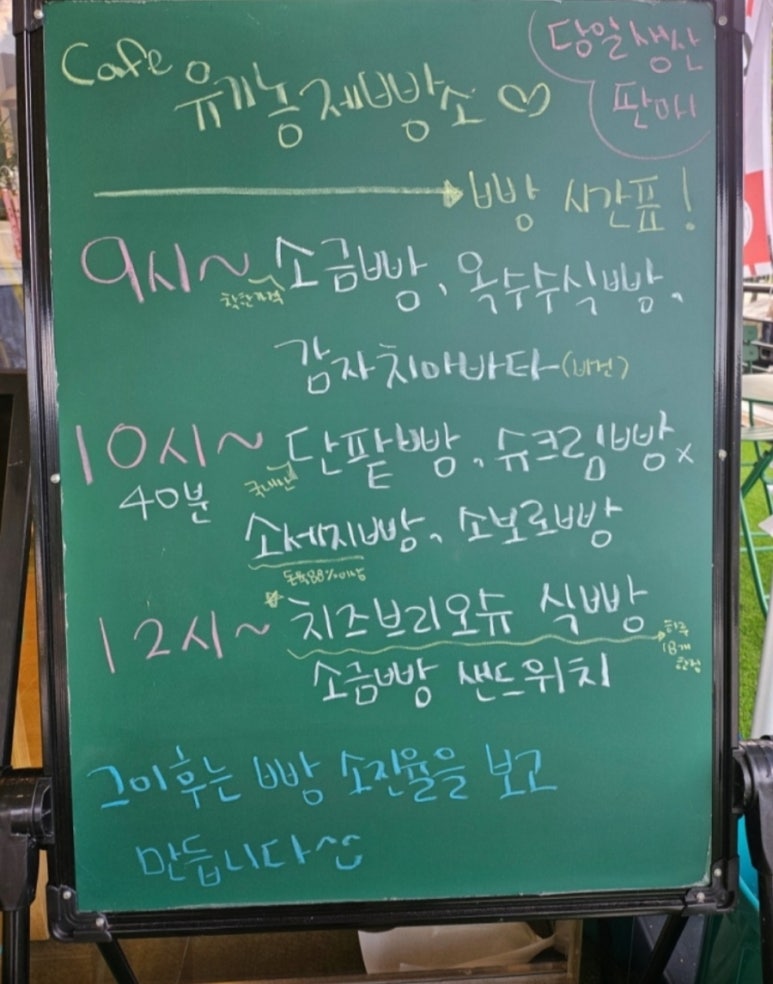 Cafe 유기농제빵소 ♡
당일생산
판매
→ 빵 시간표!
9시~ 소금빵, 옥수수식빵,
착한가격
감자치아바타 (비건)
10시~ 단팥빵, 슈크림빵,
40분
국내산
소세지빵, 소보로빵
돈육88%이상
12시~ 치즈브리오슈 식빵
하루
18개
한정
소금빵 샌드위치
그이후는 빵 소진율을 보고
만듭니다^^